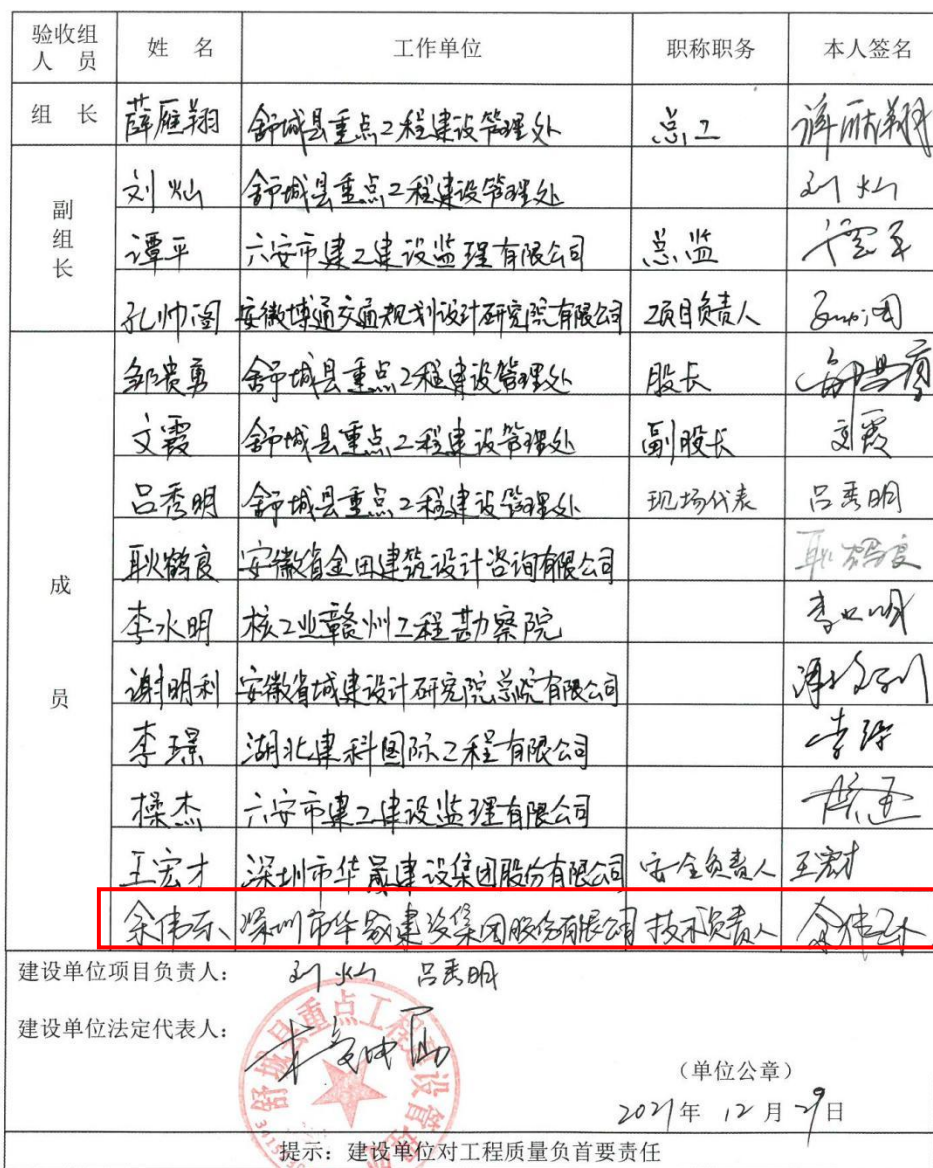 验收组人员 姓名 工作单位 职称职务 本人签名
组长 薛雁翔 舒城县重点工程建设管理处 总工 薛雁翔
副组长
刘灿 舒城县重点工程建设管理处 刘灿
谭平 六安市建工建设监理有限公司 总监
孔帅阁 安徽博通交通规划设计研究院有限公司 项目负责人
成员
邹贵勇 舒城县重点工程建设管理处 股长
文霞 舒城县重点工程建设管理处 副股长 文霞
吕秀明 舒城县重点工程建设管理处 现场代表 吕秀明
耿鹤良 安徽省金田建筑设计咨询有限公司 耿鹤良
李水明 核工业赣州工程勘察院 李水明
谢明利 安徽省城建设计研究院总院有限公司
李璟 湖北建科国际工程有限公司 李璟
操杰 六安市建工建设监理有限公司
王宏才 深圳市华晟建设集团股份有限公司 安全负责人 王宏才
余伟东 深圳市华晟建设集团股份有限公司 技术负责人 余伟东
建设单位项目负责人: 刘灿 吕秀明
建设单位法定代表人:
舒城县重点工程建设管理
(单位公章)
2021年12月29日
提示:建设单位对工程质量负首要责任